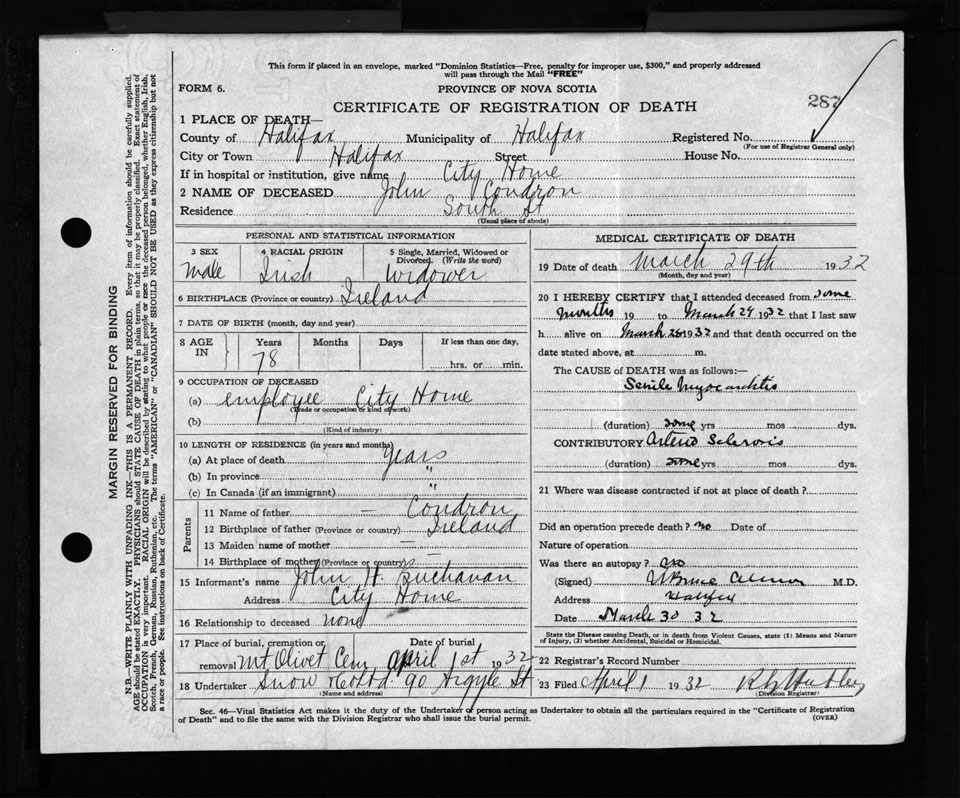 This form if placed in an envelope, marked "Dominion Statistics—Free, penalty for improper use, $300," and properly addressed
will pass through the Mail "FREE"
FORM 6.
PROVINCE OF NOVA SCOTIA
CERTIFICATE OF REGISTRATION OF DEATH
287
1 PLACE OF DEATH—
County of Halifax Municipality of Halifax Registered No.
(For use of Registrar General only)
City or Town Halifax Street House No.
If in hospital or institution, give name City Home
2 NAME OF DECEASED John Condron
Residence South St
(Usual place of abode)
PERSONAL AND STATISTICAL INFORMATION
3 SEX 4 RACIAL ORIGIN 5 Single, Married, Widowed or Divorced. (Write the word)
Male Irish Widower
6 BIRTHPLACE (Province or country) Ireland
7 DATE OF BIRTH (month, day and year)
8 AGE IN Years Months Days If less than one day,
78 hrs. or min.
9 OCCUPATION OF DECEASED
(a) employee City Home
(Trade or occupation or kind of work)
(b)
(Kind of industry)
10 LENGTH OF RESIDENCE (in years and months)
(a) At place of death years
(b) In province "
(c) In Canada (if an immigrant) "
Parents
11 Name of father — Condron
12 Birthplace of father (Province or country) Ireland
13 Maiden name of mother —
14 Birthplace of mother (Province or country) —
15 Informant's name John H. Buchanan
Address City Home
16 Relationship to deceased none
17 Place of burial, cremation or removal Date of burial
Mt Olivet Cem April 1st 1932
18 Undertaker Snow & Co Ltd. 90 Argyle St
(Name and address)
MEDICAL CERTIFICATE OF DEATH
19 Date of death March 29th 1932
(Month, day and year)
20 I HEREBY CERTIFY that I attended deceased from some
months 19 to March 29 1932 that I last saw
h alive on March 28 1932 and that death occurred on
date stated above, at m.
The CAUSE OF DEATH was as follows:—
Senile Myocarditis
(duration) some yrs mos dys.
CONTRIBUTORY Arterio Sclerosis
(duration) some yrs mos dys.
21 Where was disease contracted if not at place of death?
Did an operation precede death? no Date of
Nature of operation
Was there an autopsy? no
(Signed) M.D.
Address Halifax
Date March 30 32
State the Disease causing Death, or in death from Violent Causes, state (1) Means and Nature
of Injury, (2) whether Accidental, Suicidal or Homicidal.
22 Registrar's Record Number
23 Filed April 1 1932
(Division Registrar)
Sec. 46—Vital Statistics Act makes it the duty of the Undertaker or person acting as Undertaker to obtain all the particulars required in the "Certificate of Registration
of Death" and to file the same with the Division Registrar who shall issue the burial permit.
(OVER)
MARGIN RESERVED FOR BINDING
N.B.—WRITE PLAINLY WITH UNFADING INK—THIS IS A PERMANENT RECORD. Every item of information should be carefully supplied.
AGE should be stated EXACTLY. PHYSICIANS should STATE CAUSE OF DEATH in plain terms, so that it may be properly classified. Exact statement of
OCCUPATION is very important. RACIAL ORIGIN will be described by stating to what people or race the deceased person belonged, whether English, Irish,
Scotch, French, German, Russian, Ruthenian, etc. The terms "AMERICAN" or "CANADIAN" SHOULD NOT BE USED as they express citizenship but not
a race or people. See instructions on back of Certificate.